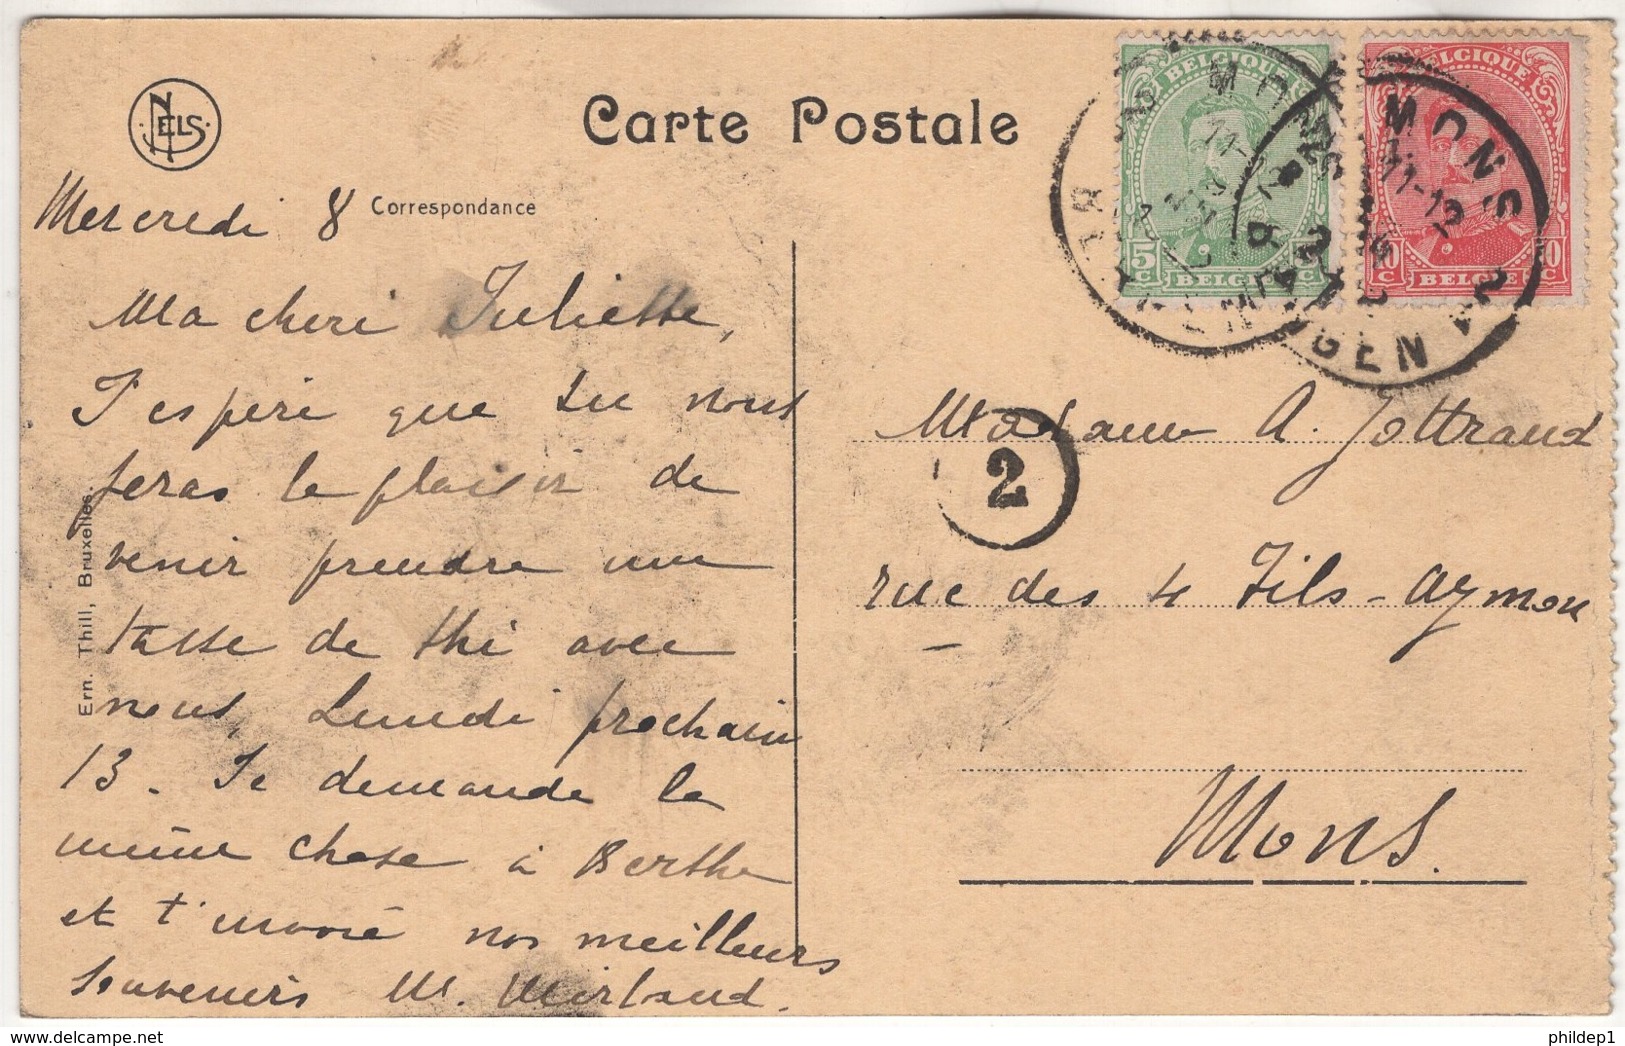 NELS
Carte Postale
Correspondance
Mercredi 8
Ma cheri Juliette,
J'esperi que tu nous
feras le plaisir de
venir prendre une
tasse de thé avec
nous, Lundi prochain
13. Je demande la
même chose à Berthe
et t'envoie nos meilleurs
souvenirs M.
Ern. Thill, Bruxelles.
BELGIQUE
5 C
BELGIE
BELGIQUE
10 C
BELGIE
10 C
MONS
MONS 2
11-12
BERGEN
2
Madame A. Jottrand
rue des 4 Fils-Aymon
Mons.
delcampe.net
phildep1